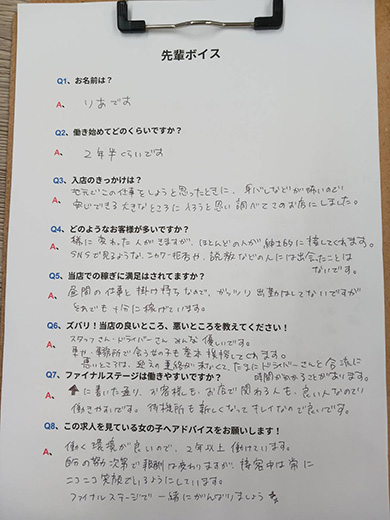 先輩ボイス
Q1、お名前は?
A、 りおです
Q2、働き始めてどのくらいですか?
A、 2年半くらいです
Q3、入店のきっかけは?
A、 地元でこの仕事をしようと思ったときに、身バレなどが怖いので
安心できる大きなところに入ろうと思い調べてこのお店にしました。
Q4、どのようなお客様が多いですか?
A、 稀に変わった人がきますが、ほとんどの人が紳士的に接してくれます。
SNSで見るような、 や、説教などの人には出会ったことは
ないです。
Q5、当店での稼ぎに満足はされてますか?
A、 昼間の仕事と掛け持ちなので、ガッツリ出勤はしてないですが
それでも十分に稼げています。
Q6、ズバリ!当店の良いところ、悪いところを教えてください!
A、 スタッフさん・ドライバーさんみんな優しいです。
車や事務所で会う女の子も基本挨拶してくれます。
悪いところは、 の連絡がまいなくて、たまにドライバーさんと合流に
時間がかかることがあります。
Q7、ファイナルステージは働きやすいですか?
A、 ↑に書いた通り、お客様も、お店で関わる人も、良い人なので
働きやすいです。待機所も新しくなってキレイなので良いです。
Q8、この求人を見ている女の子へアドバイスをお願いします!
A、 働く環境が良いので、2年以上働けています。
自分の努力次第で報酬は変わりますが、接客中は常に
ニコニコ笑顔でいるようにしています。
ファイナルステージで一緒にがんばりましょう